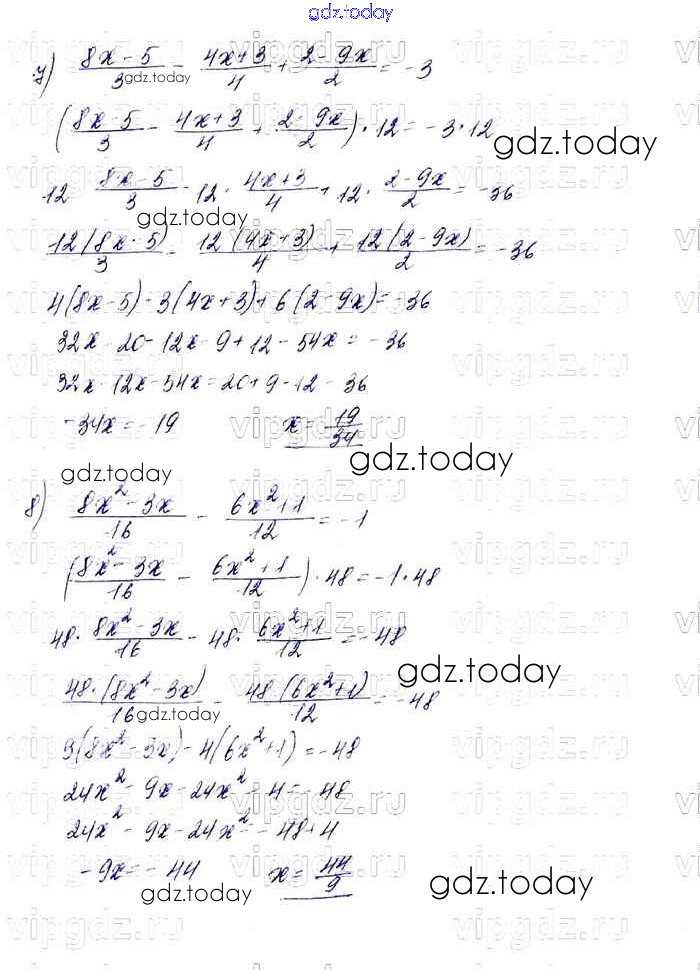 gdz.today
7) (8x-5)/3 - (4x+3)/4 + (2-9x)/2 = -3
gdz.today
((8x-5)/3 - (4x+3)/4 + (2-9x)/2) · 12 = -3·12
gdz.today
12 · (8x-5)/3 - 12 · (4x+3)/4 + 12 · (2-9x)/2 = -36
gdz.today
12(8x-5)/3 - 12(4x+3)/4 + 12(2-9x)/2 = -36
4(8x-5) - 3(4x+3) + 6(2-9x) = -36
32x - 20 - 12x - 9 + 12 - 54x = -36
32x - 12x - 54x = 20 + 9 - 12 - 36
-34x = -19 x = 19/34
gdz.today
gdz.today
8) (8x²-3x)/16 - (6x²+1)/12 = -1
((8x²-3x)/16 - (6x²+1)/12) · 48 = -1·48
48 · (8x²-3x)/16 - 48 · (6x²+1)/12 = -48
gdz.today
48·(8x²-3x)/16 - 48(6x²+1)/12 = -48
gdz.today
3(8x²-3x) - 4(6x²+1) = -48
24x² - 9x - 24x² - 4 = -48
24x² - 9x - 24x² = -48+4
-9x = -44 x = 44/9
gdz.today
gdz.today